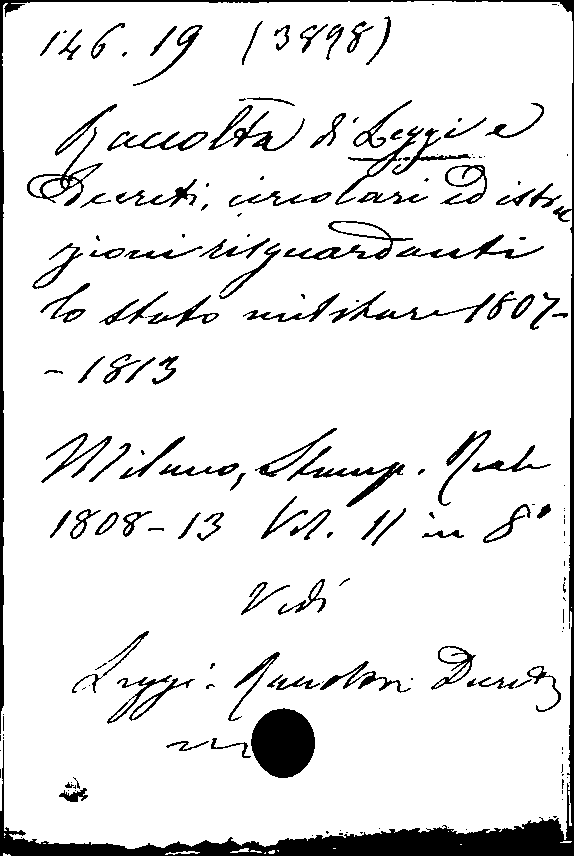 146.19 (3898)
Raccolta di Leggi e
Decreti, circolari ed istru
zioni risguardanti
lo stato militare 1807-
- 1813
Milano, Stamp. Reale
1808-13 Vol. 11 in 8°
Vedi
Leggi. Raccolta Decreti